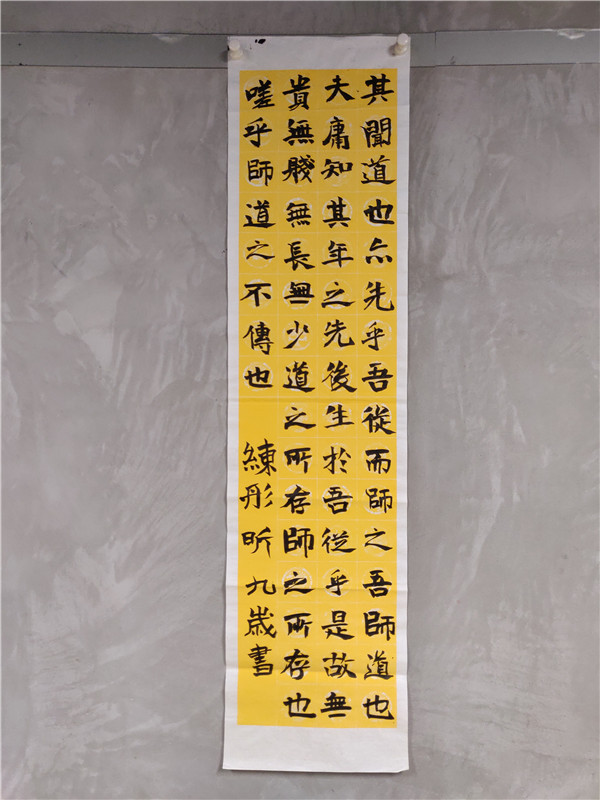 其聞道也亦先乎吾從而師之吾師道也
夫庸知其年之先後生於吾從乎是故無
貴無賤無長無少道之所存師之所存也
嗟乎師道之不傳也
練彤昕九歲書